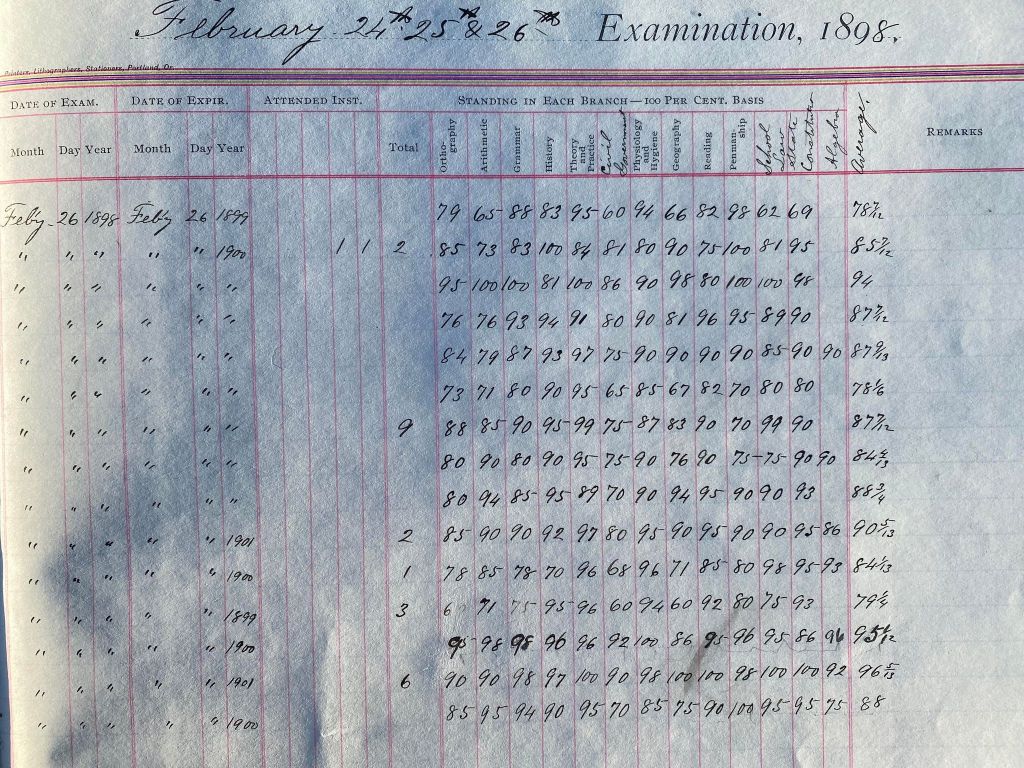 February 24th 25th & 26th Examination, 1898.
Printers, Lithographers, Stationers, Portland, Or.
DATE OF EXAM. DATE OF EXPIR. ATTENDED INST. STANDING IN EACH BRANCH—100 PER CENT. BASIS
Month Day Year Month Day Year Total Ortho-graphy Arithmetic Grammar History Theory and Practice Civil Government Physiology and Hygiene Geography Reading Penman-ship School Law State Constitution Algebra Average. REMARKS
Feb'y. 26 1898 Feb'y 26 1899 79 65 88 83 95 60 94 66 82 98 62 69 78 7/12
" " " " " 1900 1 1 2 85 73 83 100 84 81 80 90 75 100 81 95 85 7/12
" " " " " " 95 100 100 81 100 86 90 98 80 100 100 98 94
" " " " " " 76 76 93 94 91 80 90 81 96 95 89 90 87 7/12
" " " " " " 84 79 87 93 97 75 90 90 90 90 85 90 90 87 9/13
" " " " " " 73 71 80 90 95 65 85 67 82 70 80 80 78 1/6
" " " " " " 9 88 85 90 95 99 75 87 83 90 70 99 90 87 7/12
" " " " " " 80 90 80 90 95 75 90 76 90 75 75 90 90 84 4/13
" " " " " " 80 94 85 95 89 70 90 94 95 90 90 93 88 3/4
" " " " " 1901 2 85 90 90 92 97 80 95 90 95 90 90 95 86 90 5/13
" " " " " 1900 1 78 85 78 70 96 68 96 71 85 80 98 95 93 84 1/13
" " " " " 1899 3 71 75 95 96 60 94 60 92 80 75 93 79 1/4
" " " " " 1900 95 98 98 96 96 92 100 86 95 96 95 86 96
" " " " " 1901 6 90 90 98 97 100 90 98 100 100 98 100 100 92 96 5/13
" " " " " 1900 85 95 94 90 95 70 85 75 90 100 95 95 75 88